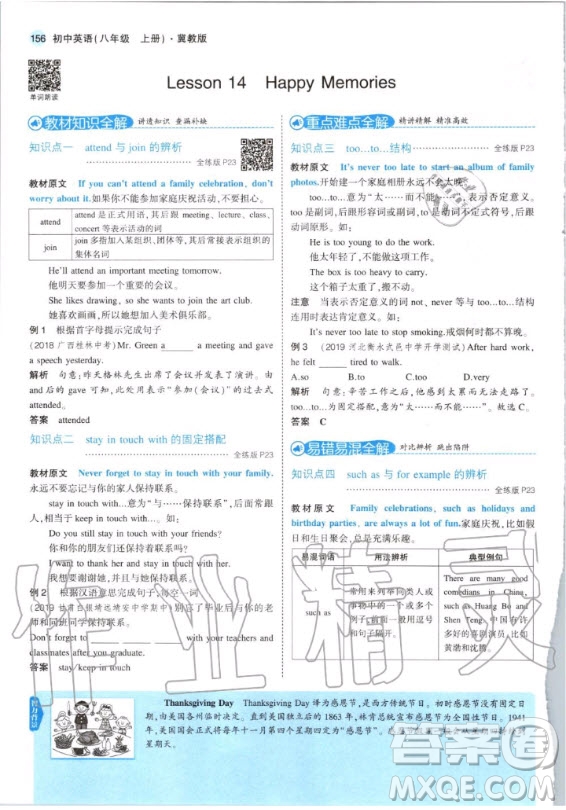 156 初中英语(八年级 上册)·冀教版
单词朗读
Lesson 14 Happy Memories
教材知识全解 讲透知识 查漏补缺
知识点一 attend 与 join 的辨析
全练版 P23
教材原文 If you can't attend a family celebration, don't
worry about it.如果你不能参加家庭庆祝活动,不要担心。
attend attend 是正式用语,其后跟 meeting, lecture, class,
concert 等表示活动的词
join join 多指加入某组织、团体等,其后常接表示组织的
集体名词
He'll attend an important meeting tomorrow.
他明天要参加一个重要的会议。
She likes drawing, so she wants to join the art club.
她喜欢画画,所以她想加入美术俱乐部。
例 1 根据首字母提示完成句子
(2018 广西桂林中考) Mr. Green a______ a meeting and gave
a speech yesterday.
解析 句意:昨天格林先生出席了会议并发表了演讲。由
and后的 gave 可知,此处用表示“参加(会议)”的过去式
attended。
答案 attended
知识点二 stay in touch with 的固定搭配
全练版 P23
教材原文 Never forget to stay in touch with your family.
永远不要忘记与你的家人保持联系。
stay in touch with...意为“与……保持联系”,后面常跟
人,相当于 keep in touch with...。
Do you still stay in touch with your friends?
你和你的朋友们还保持联系吗?
I want to thank her and stay in touch with her.
我想要谢谢她,并和她保持联系。
例 2 根据汉语意思完成句子,每空一词
别忘了毕业后与你的老
师和同班同学保持联系。
Don't forget to ______ ______ ______ with your teachers and
classmates after you graduate.
答案 stay in touch
重点难点全解 精讲精解 精准高效
知识点三 too...to...结构
全练版 P23
教材原文 It's never too late to start an album of family
photos.开始建一个家庭相册永远不太晚。
too...to...意为“太……而不能……”,表示否定意义。
too 是副词,后跟形容词或副词,to 是动词不定式符号,后跟
动词原形。如:
He is too young to do the work.
他太年轻了,不能做这项工作。
The box is too heavy to carry.
这个箱子太重了,搬不动。
注意 当表示否定意义的词 not、never 等与 too...to...结构
连用时表达肯定意义。如:
It's never too late to stop smoking.戒烟何时都不算晚。
例 3 (2019 河北衡水武邑中学开学测试) After hard work,
he felt ______ tired to walk.
A.so B.too C.too D.very
解析 句意:辛苦工作之后,他感到太累而无法走路了。
too...to...为固定结构,意为“太……而不能……”。故选 C。
答案 C
易错易混全解 对比辨析 跳出陷阱
知识点四 such as 与 for example 的辨析
全练版 P23
教材原文 Family celebrations, such as holidays and
birthday parties, are always a lot of fun.家庭庆祝,比如假
日和生日聚会,总是充满乐趣。
易混词语 用法辨析 典型例句
such as 常用来列举同类人或事物中的一个或多个例子,前面一般用逗号和句子隔开。 There are many good comedians in China, such as Huang Bo and Shen Teng. 中国有许多好的喜剧演员,比如黄渤和沈腾。
Thanksgiving Day Thanksgiving Day 译为感恩节,是西方传统节日。初时感恩节没有固定日期,
由美国各州临时决定。直到美国独立后的 1863 年,林肯总统宣布感恩节为全国性节日。1941
年,美国国会正式将每年十一月第四个星期四定为“感恩节”。
星期天。
作业精灵
答案圈
MXQE.COM